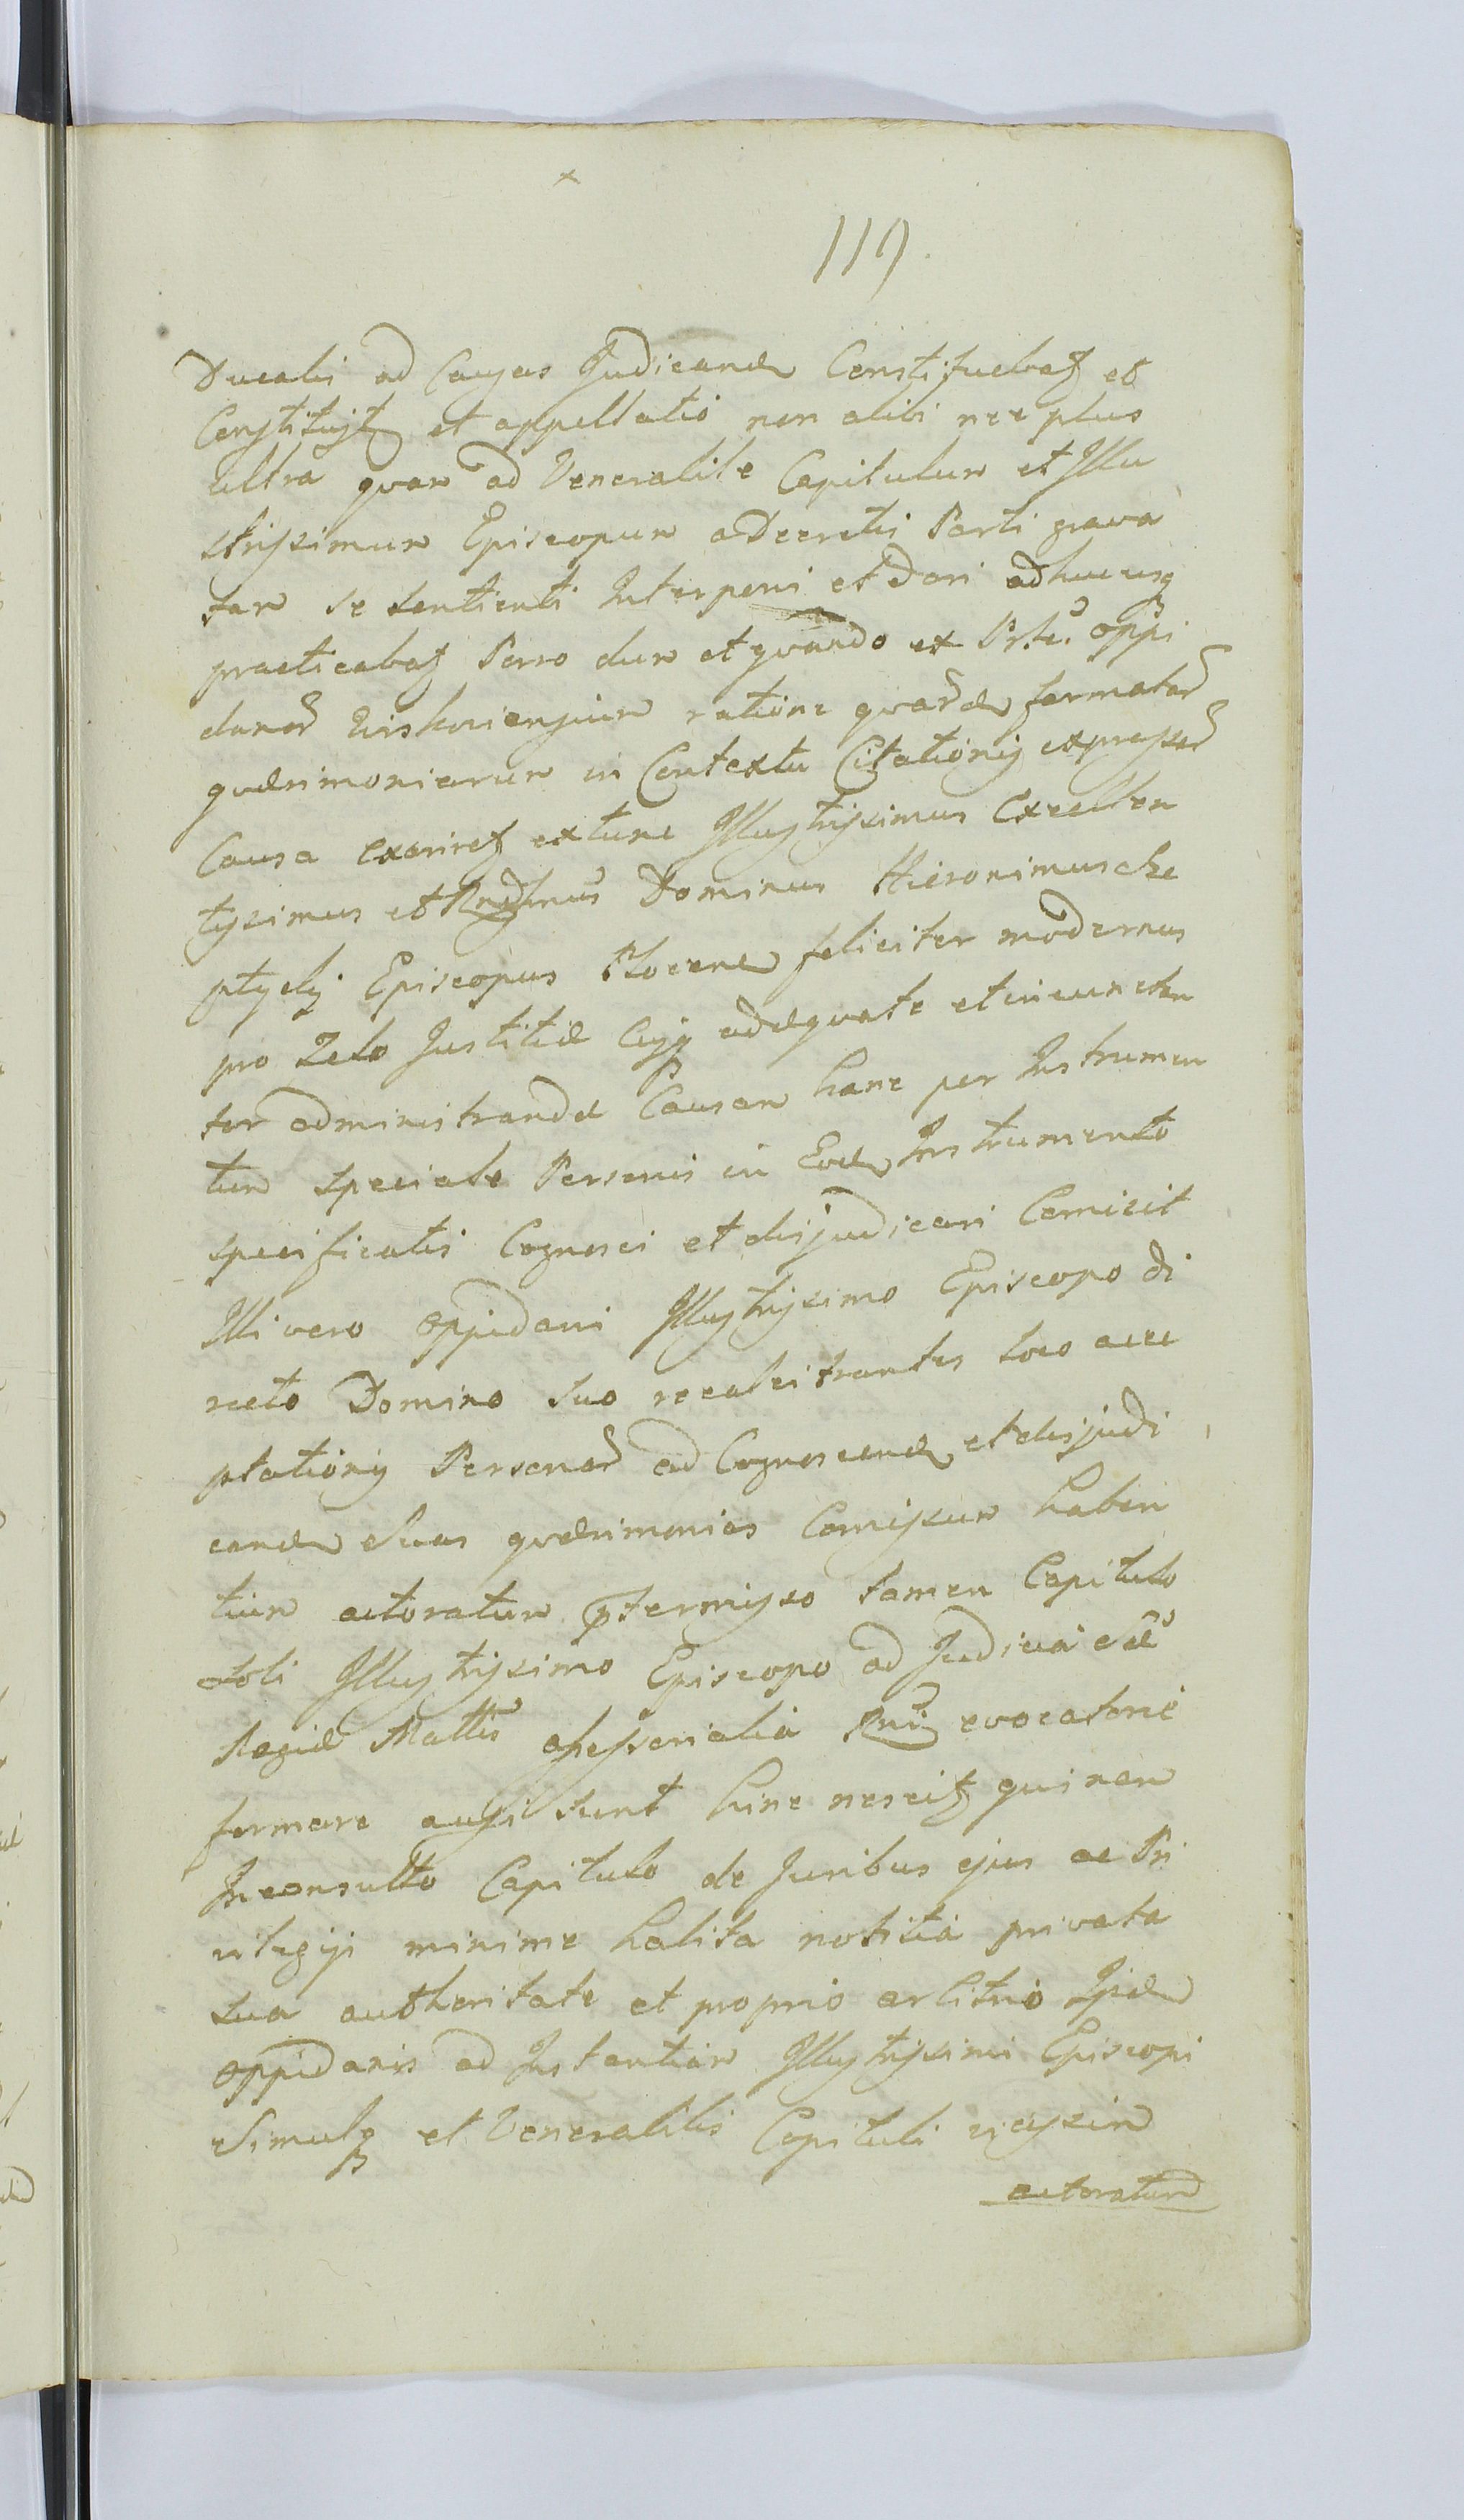 119.
Ducalis ad Causas Judicand Constituebat et
Constituit et appellatio non alibi nec plus
ultra quam ad Venerabile Capitulum et Illu
strissimum Episcopum a Decretis Parti grava
tam se sentienti Interponi et Dari adhucusq
practicabat Porro dum et quando ex Prte oppi
danor ratione quarund formatar
quærimoniarum in Contextu Citationis expressar
Causa exoriret extunc Illustrissimus Excellen
tissimus et Rndssimus Dominus Hieronimus Sze
ptycki Episcopus Plocens feliciter modernus
pro Zelo Justitiæ Cujq adæquate et incunctan
ter administrandæ Causam hanc per Instrumen
tum speciale Personis in Eod Instrumento
specificatis Cognosci et disjudicari Comisit
Illi vero Oppidani Illustrissimo Episcopo Di
recto Domino Suo recalcitrantes loco acce
ptationis Personar ad Cognoscend et disjudi
cand Suas quærimonias Comissum haben
tium actoratum prtermisso tamen Capitulo
Soli Illustrissimo Episcopo ad Judicia
Regiæ Mattis Assessorialia Rni evocatorie
formare ausi Sunt hinc nescit quinam
Inconsulto Capitulo de Juribus ejus ac Pri
vilegiji minime habita notitia privata
Sua authoritate et proprio arbitrio Ijsd
Oppidanis ad Instantiam Illustrissimi Episcopi
Simulq et Venerabilis Capituli vicissim
actoratum